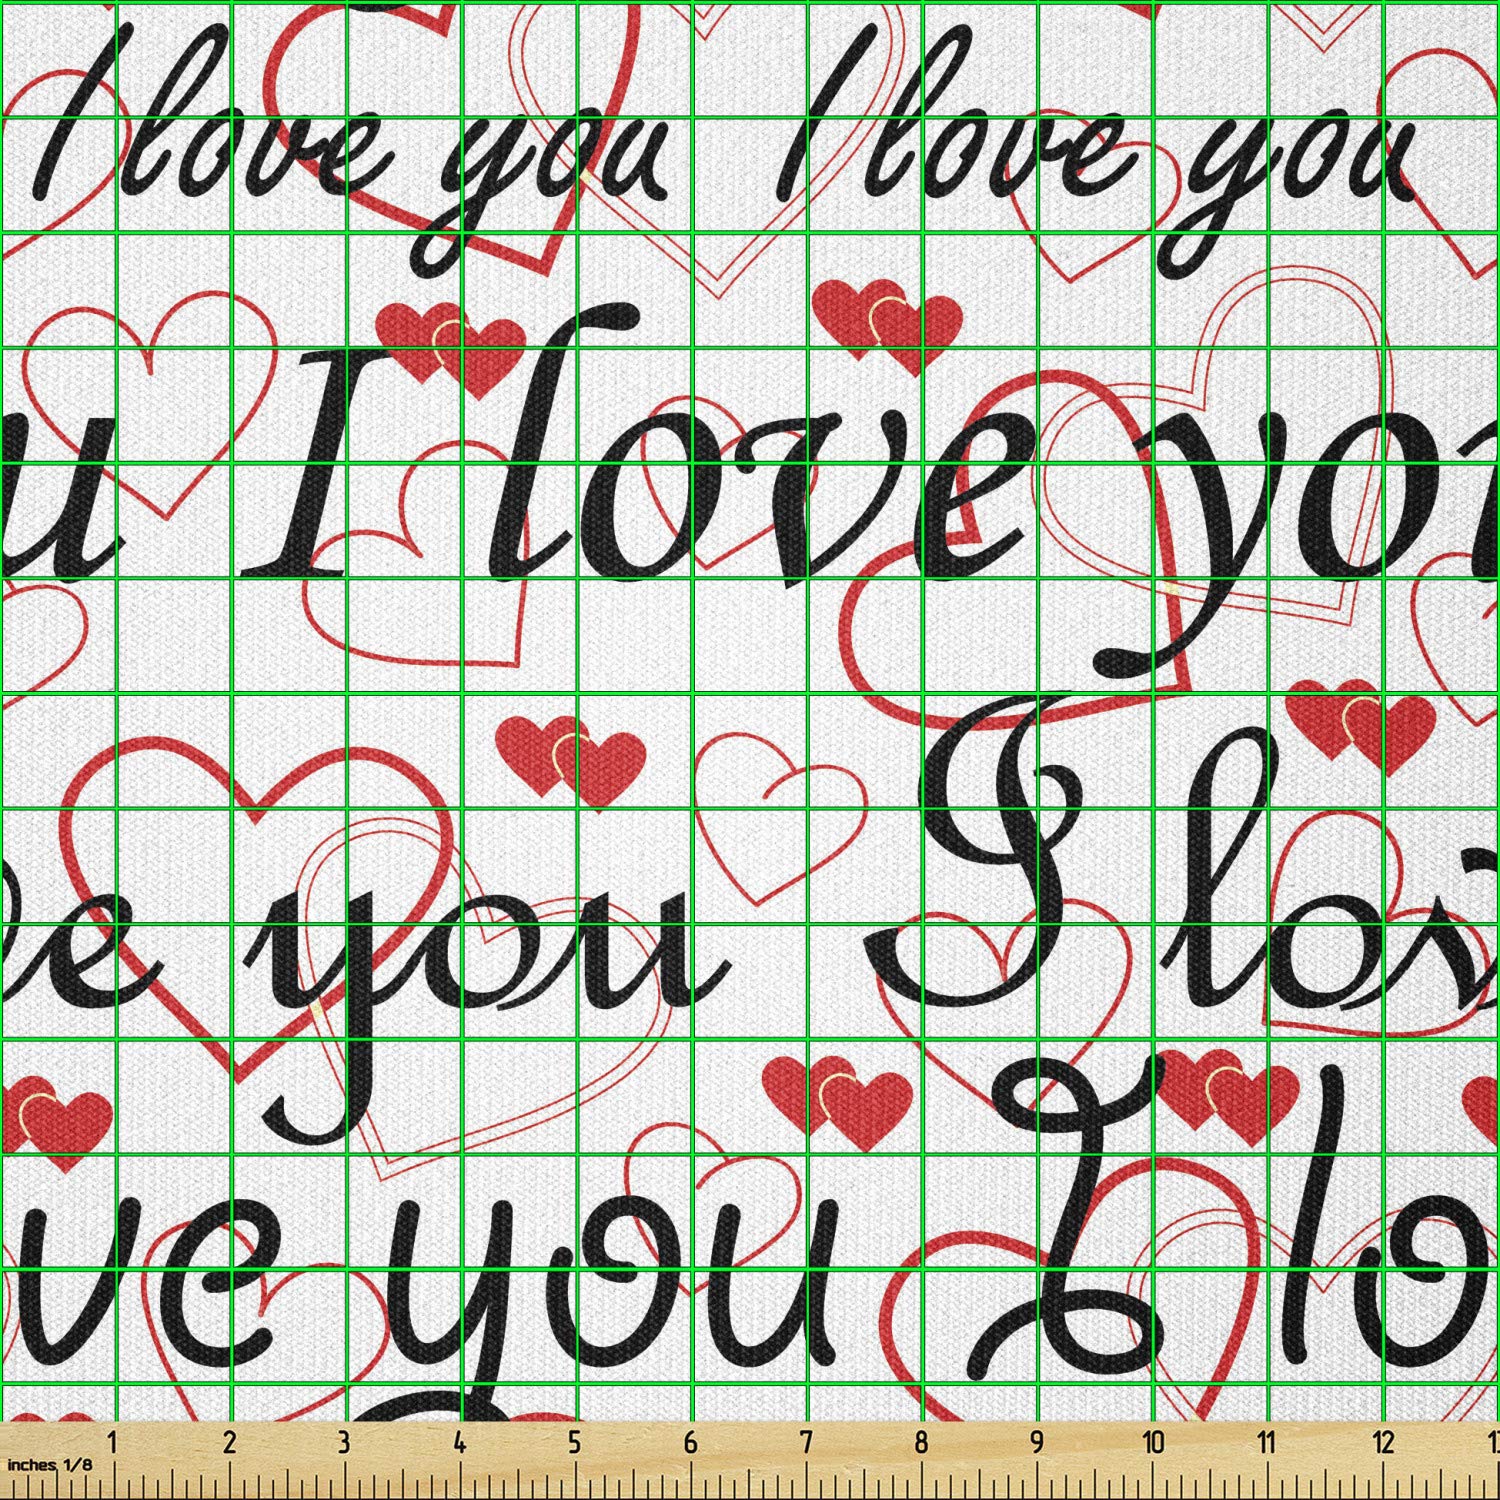 I love you I love you
u I love you
ve you I lov
ve you I lo
1 2 3 4 5 6 7 8 9 10 11 12 13
inches 1/8